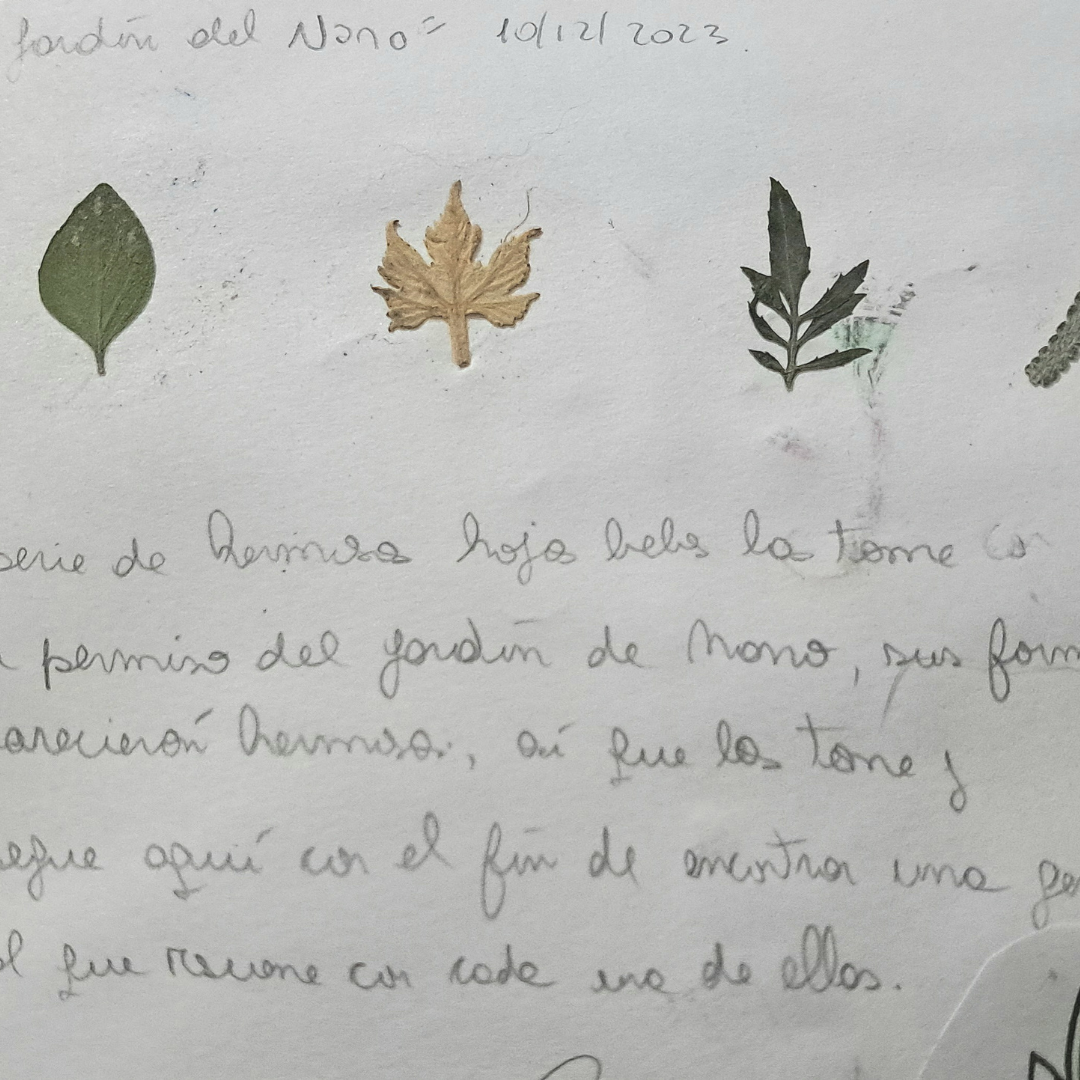 Jardín del Nano= 10/12/2023.
serie de hermosa hoja bebs la tome con
permiso del jardín de Nono, sus form
arecieron hermosa, así que las tome y
egue aquí con el fin de encontrar una
que rauone con cada una de ellas.